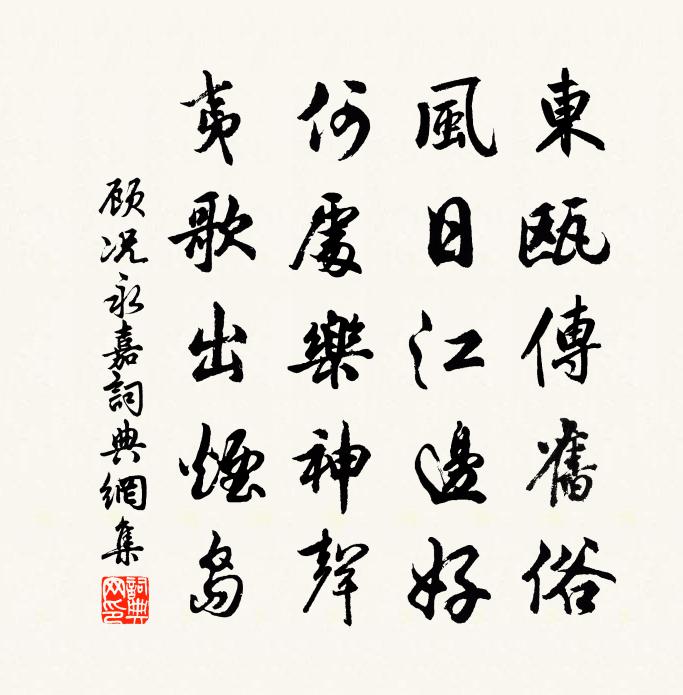 東甌傳舊俗
風日江邊好
何處樂神聲
夷歌出煙島
顾况永嘉詞典網集
詞典网印